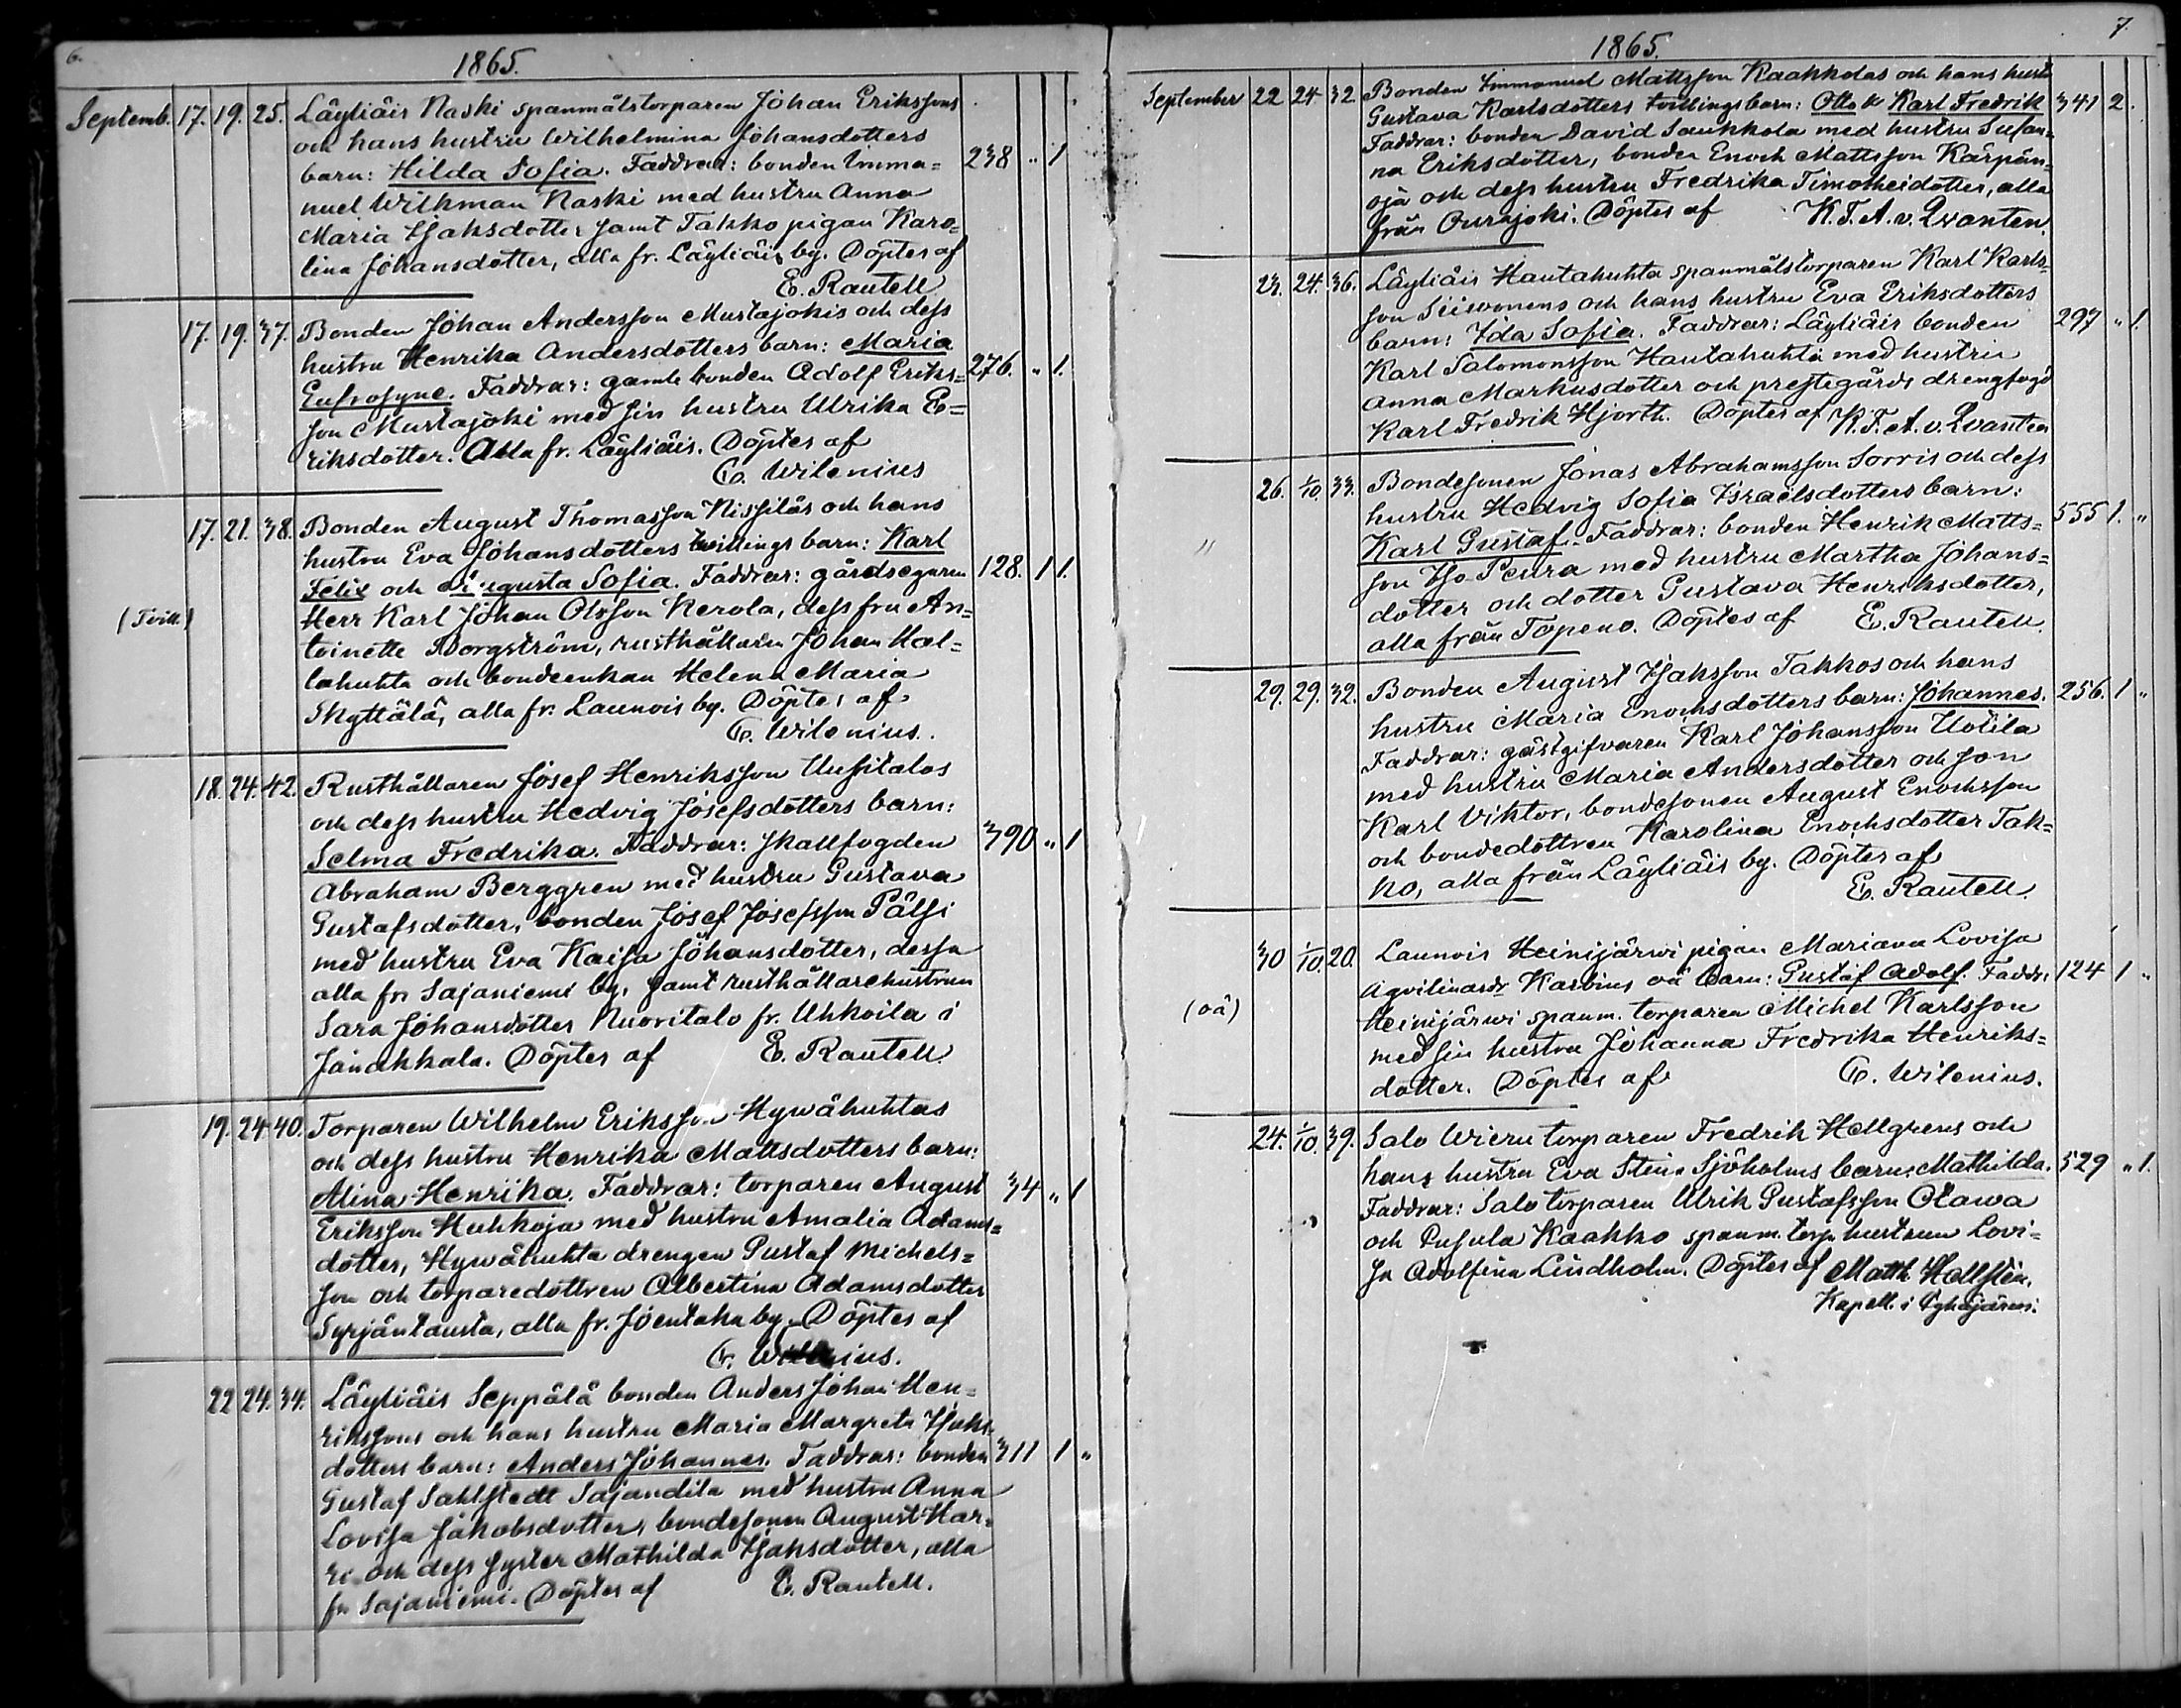 6.
1865.
Septemb. 17. 19. 25. Läyliäis Naski spanmålstorparen Johan Erikssons
och hans hustru Wilhelmina Johansdotters
barn: Hilda Sofia. Faddrar: bonden Imma= 238 " 1
nuel Wilkman Naski med hustru Anna
Maria Isaksdotter samt Takko pigan Karo=
lina Johansdotter, alla fr. Läyliäis by. Döptes af
E. Rautell
17. 19. 37. Bonden Johan Andersson Mustajokis och dess
hustru Henrika Andersdotters barn: Maria
Eufrosyne. Faddrar: gamle bonden Adolf Eriks= 276. " 1.
son Mustajoki med sin hustru Ulrika E=
riksdotter. Alla fr. Läyliäis. Döptes af
G. Wilenius
17. 21. 38. Bonden August Thomasson Nissiläs och hans
hustru Eva Johansdotters tvillings barn: Karl
Felix och Augusta Sofia. Faddrar: gårdsegaren 128. 1 1.
(Tvill.) Herr Karl Johan Olsson Kerola, dess fru An=
toinette Borgström, rusthållaren Johan Mal=
lahuhta och bondeenkan Helena Maria
Skyttälä, alla fr. Launois by. Döptes af
G. Wilenius.
18. 24. 42. Rusthållaren Josef Henriksson Uusitalos
och dess hustru Hedvig Josefsdotters barn:
Selma Fredrika. Faddrar: skallfogden 390 " 1
Abraham Berggren med hustru Gustava
Gustafsdotter, bonden Josef Josefsson Pälsi
med hustru Eva Kaisa Johansdotter, dessa
alla fr. Sajaniemi by, samt rusthållarehustrun
Sara Johansdotter Nuoritalo fr. Uhkoila i
Janakkala. Döptes af E. Rautell.
19. 24 40. Torparen Wilhelm Eriksson Hywähuhtas
och dess hustru Henrika Mattsdotters barn:
Alina Henrika. Faddrar: torparen August 34 " 1
Eriksson Huhkoja med hustru Amalia Adams=
dotter, Hywähuhta drengen Gustaf Michels=
son och torparedottren Albertina Adamsdotter
Syrjäntausta, alla fr. Joentaka by. Döptes af
G. Wilenius.
22 24. 34. Läyliäis Seppälä bonden Anders Johan Hen=
rikssons och hans hustru Maria Margreta Isaks=
dotters barn: Anders Johannes. Faddrar: bonden 311 1 "
Gustaf Sahlstedt Sajandila med hustru Anna
Lovisa Jakobsdotter, bondesonen August Har=
ri och dess syster Mathilda Isaksdotter, alla
fr. Sajaniemi. Döptes af E. Rautell.
7.
1865.
September 22 24 32 Bonden Immanuel Mattsson Kaakkolas och hans hustr
Gustava Karlsdotters tvillingsbarn: Otto & Karl Fredrik 341 2.
Faddrar: bonden David Saukkola med hustru Susan=
na Eriksdotter, bonden Enoch Mattsson Kärpän=
oja och dess hustru Fredrika Timotheidotter, alla
från Ourajoki. Döptes af K. F. A. v. Qvanten.
23. 24. 36. Läyliäis Hautahuhta spanmålstorparen Karl Karls=
son Siiwonens och hans hustru Eva Eriksdotters
barn: Ida Sofia. Faddrar: Läyliäis bonden 297 " 1.
Karl Salomonsson Hautahuhta med hustru
Anna Markusdotter och prestegårds drengfogd
Karl Fredrik Hjorth. Döptes af K. F. A. v. Qvanten
26. 1/10. 33. Bondesonen Jonas Abrahamsson Sorris och dess
hustru Hedvig Sofia Israelsdotters barn:
" Karl Gustaf. Faddrar: bonden Henrik Matts= 555 1. "
son Iso-Peura med hustru Martha Johans=
dotter och dotter Gustava Henriksdotter,
alla från Topeno. Döptes af E. Rautell.
29. 29. 32. Bonden August Isaksson Takkos och hans
hustru Maria Enochsdotters barn: Johannes. 256. 1 "
Faddrar: gästgifvaren Karl Johansson Uotila
med hustru Maria Andersdotter och son
Karl Viktor, bondesonen August Enochsson
och bondedottren Karolina Enochsdotter Tak=
ko, alla från Läyliäis by. Döptes af
E. Rautell.
30 1/10. 20. Launois Heinijärwi pigan Mariana Lovisa
Agvilinasdr Karvins oä barn: Gustaf Adolf. Faddr: 124 1 "
(oä) Heinijärwi spanm. torparen Michel Karlsson
med sin hustru Johanna Fredrika Henriks=
dotter. Döptes af G. Wilenius.
24. 1/10. 39. Salo Wieru torparen Fredrik Hellgrens och
hans hustru Eva Stina Sjöholms barn: Mathilda. 529 " 1.
Faddrar: Salo torparen Ulrik Gustafsson Otawa
och Pusula Kaakko spanm. torp. hustrun Lovi=
sa Adolfina Lindholm. Döptes af Matth. Hellstén.
Kapell. i Pyhäjärwi.